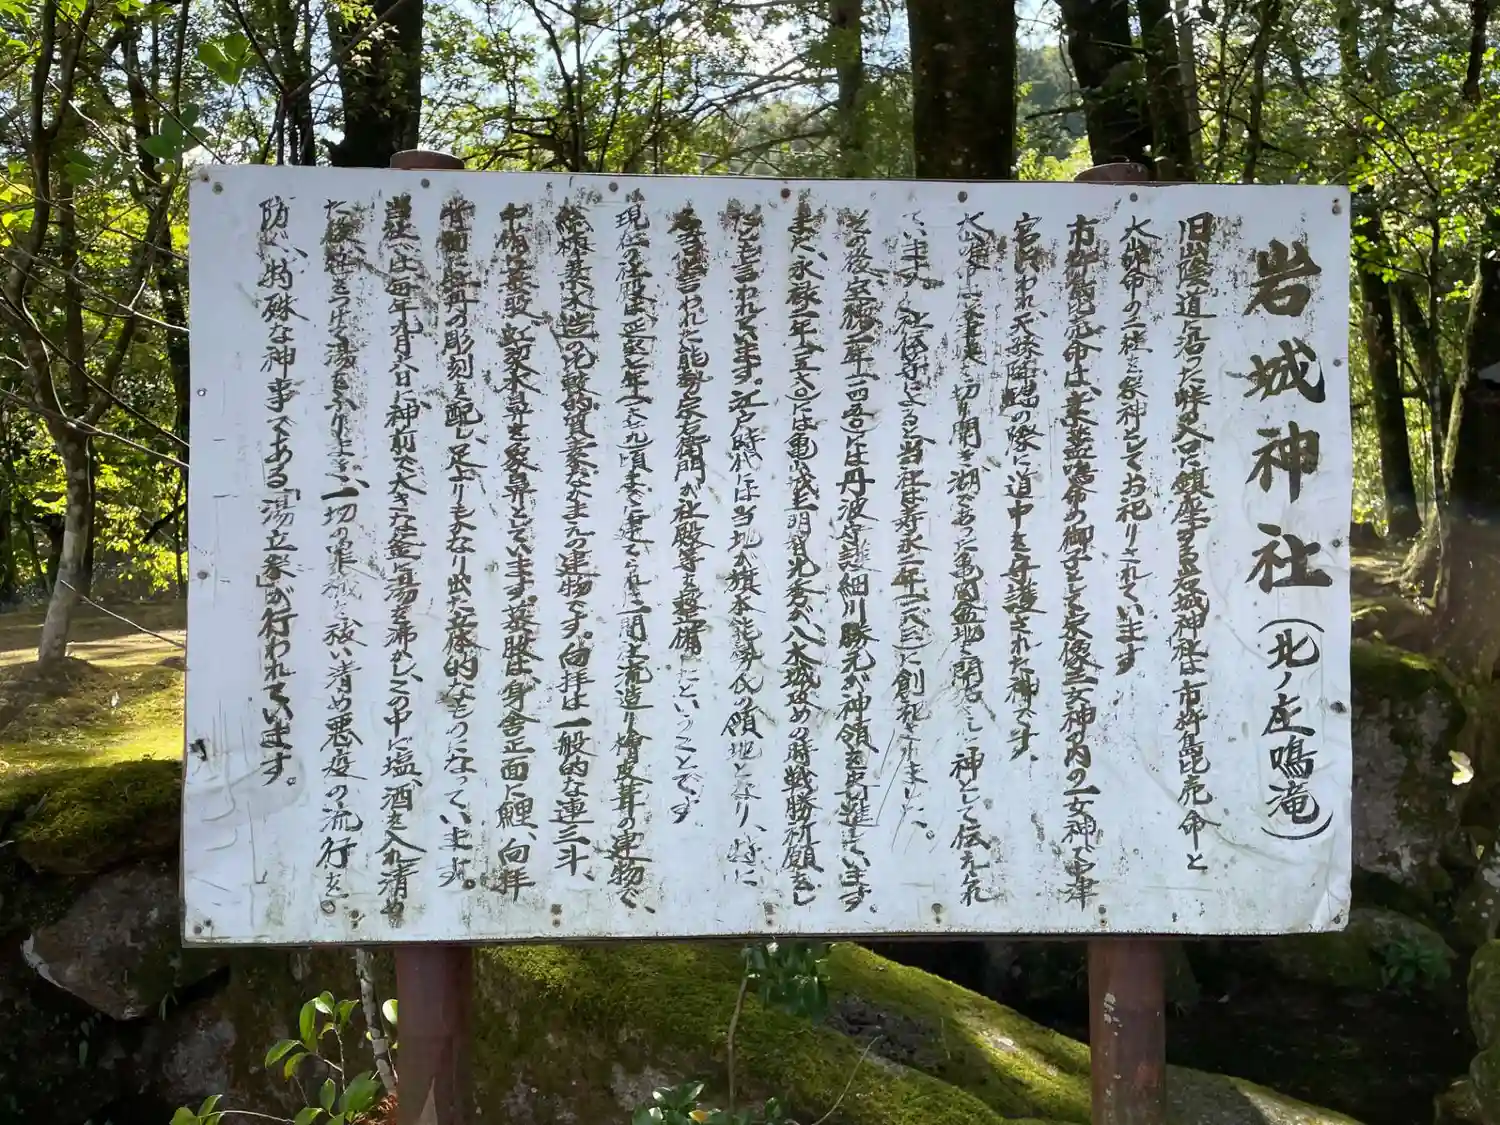 岩城神社(北ノ庄鳴滝)
旧山陰道に沿った峠入口に鎮座する岩城神社は市杵島毘売命と
大山 命の二柱を祭神としてお祀りされています
市杵島毘売命は、素盞嗚命の御子として宗像三女神の内の一女神で中津
宮に われ天孫降臨の際に道中を守護された神です。
大山 命は 峡を切り開き湖であった亀岡盆地を開拓した神として伝えられ
ています。社伝等によると当社は寿永二年(一一八三)に創祀されました。
その後、宝徳三年(一四五一)には丹波守護細川勝元が神領を寄進しています。
また、永禄 年(一五 )には亀山城主明智光秀が八木城攻めの時戦勝祈願をし
たとも言われています。江戸時代には当地が旗本能勢氏の領地となり、特に
名君と言われた能勢宗右衛門が社殿等を整備したということです
現在の本殿は、延宝七年(一六七九)頃までに建てられた一間社流造り檜皮葺の建物で、
総欅素木造の比較的質素なかまえの建物です。向拝は一般的な連三斗、
中備は蟇股、虹梁木鼻を象鼻としています。蟇股は、身舎正面に鯉、向拝
背面に牡丹の彫刻を配し、足よりも大なり出た立体的なものになっています。
当社では毎年九月八日に神前で大きな釜に湯を沸かし、この中に塩、酒を入れ清め
た後 をつけて湯をふりまき、一切の罪穢を祓い清め悪疫の流行を
防ぐ、特殊な神事である「湯立祭」が行われています。